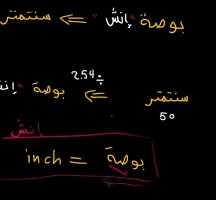 بوصة "إنش" ⇐ سنتمتر
سنتمتر ⇐ بوصة "إن
÷ 2.54
50
إنش
inch = بوصة